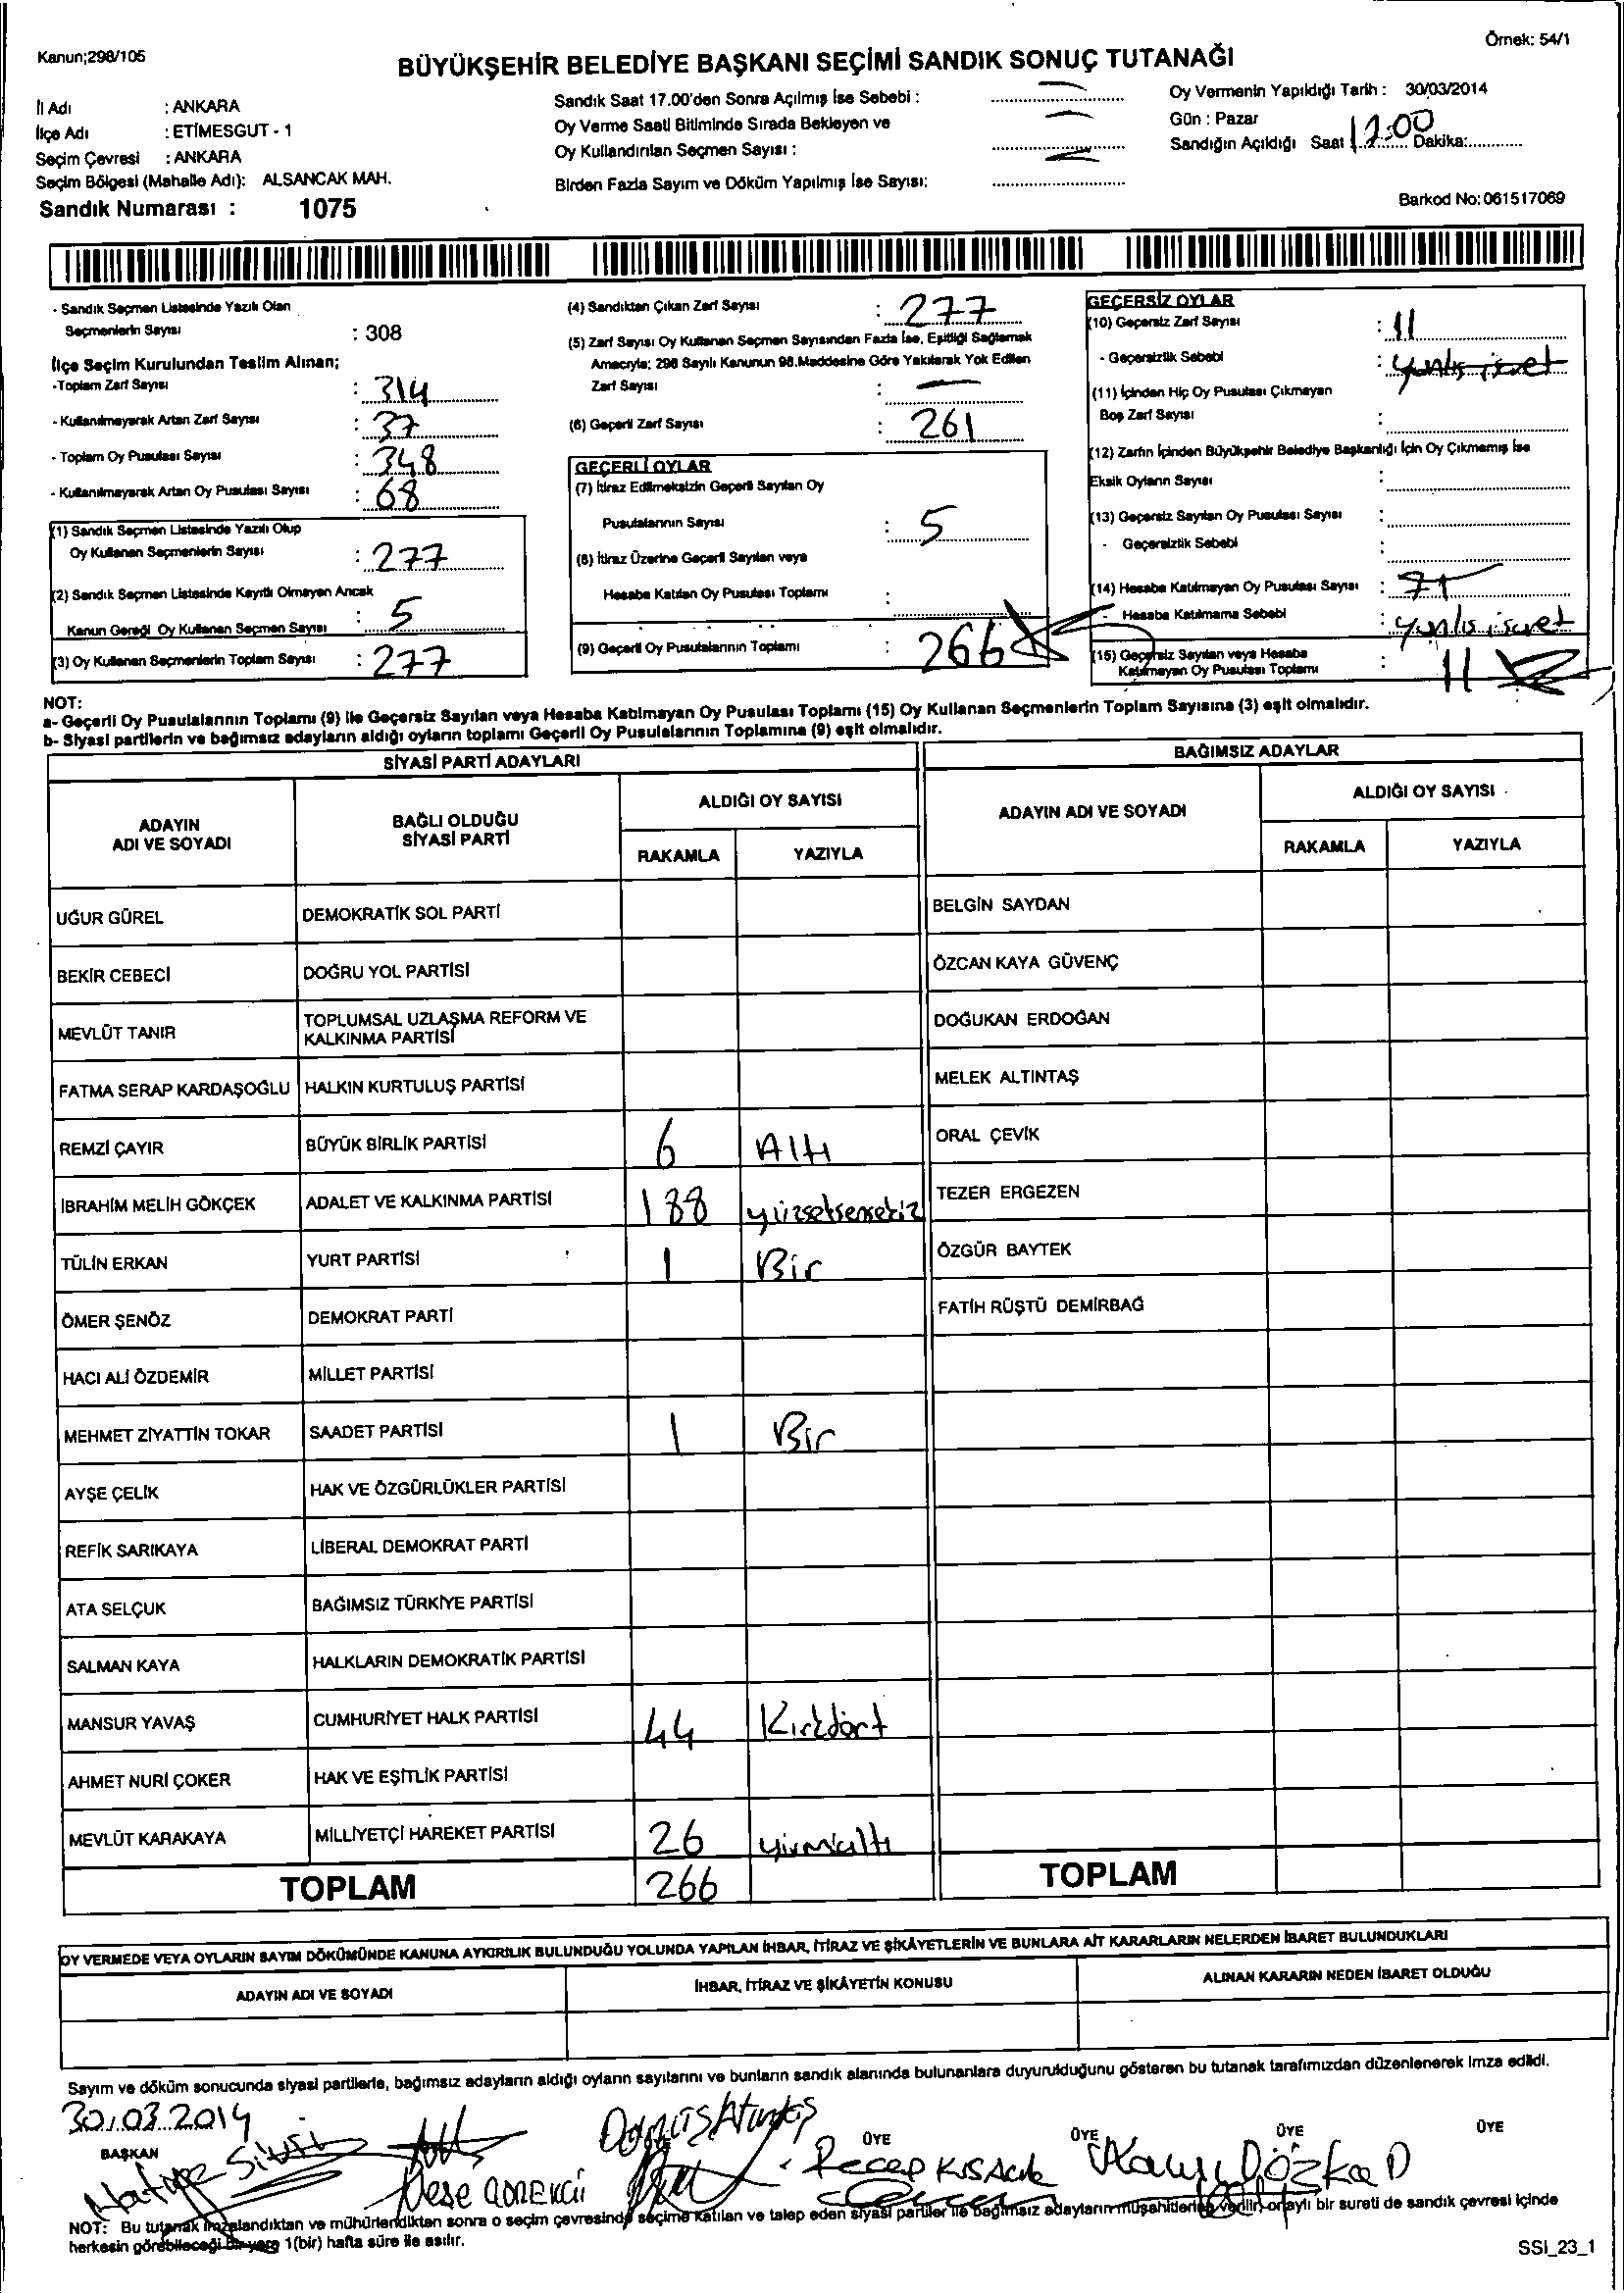 Kanun;298/105
Örnek: 54/1
BÜYÜKŞEHİR BELEDİYE BAŞKANI SEÇİMİ SANDIK SONUÇ TUTANAĞI
İl Adı : ANKARA
İlçe Adı : ETİMESGUT - 1
Seçim Çevresi : ANKARA
Seçim Bölgesi (Mahalle Adı): ALSANCAK MAH.
Sandık Numarası : 1075
Sandık Saat 17.00'den Sonra Açılmış İse Sebebi :
Oy Verme Saati Bitiminde Sırada Bekleyen ve
Oy Kullandırılan Seçmen Sayısı :
Birden Fazla Sayım ve Döküm Yapılmış İse Sayısı:
Oy Vermenin Yapıldığı Tarih : 30/03/2014
Gün : Pazar
Sandığın Açıldığı Saat 17:00 Dakika:
Barkod No: 061517069
- Sandık Seçmen Listesinde Yazılı Olan
Seçmenlerin Sayısı : 308
İlçe Seçim Kurulundan Teslim Alınan;
-Toplam Zarf Sayısı : 314
- Kullanılmayarak Artan Zarf Sayısı : 37
- Toplam Oy Pusulası Sayısı : 348
- Kullanılmayarak Artan Oy Pusulası Sayısı : 68
(1) Sandık Seçmen Listesinde Yazılı Olup
Oy Kullanan Seçmenlerin Sayısı : 277
(2) Sandık Seçmen Listesinde Kayıtlı Olmayan Ancak
Kanun Gereği Oy Kullanan Seçmen Sayısı : 5
(3) Oy Kullanan Seçmenlerin Toplam Sayısı : 277
(4) Sandıktan Çıkan Zarf Sayısı : 277
(5) Zarf Sayısı Oy Kullanan Seçmen Sayısından Fazla İse, Eşitliği Sağlamak
Amacıyla; 298 Sayılı Kanunun 98.Maddesine Göre Yakılarak Yok Edilen
Zarf Sayısı : —
(6) Geçerli Zarf Sayısı : 261
GEÇERLİ OYLAR
(7) İtiraz Edilmeksizin Geçerli Sayılan Oy
Pusulalarının Sayısı : 5
(8) İtiraz Üzerine Geçerli Sayılan veya
Hesaba Katılan Oy Pusulası Toplamı :
(9) Geçerli Oy Pusulalarının Toplamı : 266
GEÇERSİZ OYLAR
(10) Geçersiz Zarf Sayısı : 11
- Geçersizlik Sebebi : yanlış işaret
(11) İçinden Hiç Oy Pusulası Çıkmayan
Boş Zarf Sayısı :
(12) Zarfın İçinden Büyükşehir Belediye Başkanlığı İçin Oy Çıkmamış İse
Eksik Oyların Sayısı :
(13) Geçersiz Sayılan Oy Pusulası Sayısı :
- Geçersizlik Sebebi :
(14) Hesaba Katılmayan Oy Pusulası Sayısı :
- Hesaba Katılmama Sebebi : yanlış işaret
(15) Geçersiz Sayılan veya Hesaba
Katılmayan Oy Pusulası Toplamı : 11
NOT:
a- Geçerli Oy Pusulalarının Toplamı (9) ile Geçersiz Sayılan veya Hesaba Katılmayan Oy Pusulası Toplamı (15) Oy Kullanan Seçmenlerin Toplam Sayısına (3) eşit olmalıdır.
b- Siyasi partilerin ve bağımsız adayların aldığı oyların toplamı Geçerli Oy Pusulalarının Toplamına (9) eşit olmalıdır.
SİYASİ PARTİ ADAYLARI
BAĞIMSIZ ADAYLAR
ADAYIN ADI VE SOYADI
BAĞLI OLDUĞU SİYASİ PARTİ
ALDIĞI OY SAYISI
RAKAMLA YAZIYLA
ADAYIN ADI VE SOYADI
ALDIĞI OY SAYISI
RAKAMLA YAZIYLA
UĞUR GÜREL DEMOKRATİK SOL PARTİ BELGİN SAYDAN
BEKİR CEBECİ DOĞRU YOL PARTİSİ ÖZCAN KAYA GÜVENÇ
MEVLÜT TANIR TOPLUMSAL UZLAŞMA REFORM VE KALKINMA PARTİSİ DOĞUKAN ERDOĞAN
FATMA SERAP KARDAŞOĞLU HALKIN KURTULUŞ PARTİSİ MELEK ALTINTAŞ
REMZİ ÇAYIR BÜYÜK BİRLİK PARTİSİ 6 Altı ORAL ÇEVİK
İBRAHİM MELİH GÖKÇEK ADALET VE KALKINMA PARTİSİ 188 yüzseksensekiz TEZER ERGEZEN
TÜLİN ERKAN YURT PARTİSİ 1 Bir ÖZGÜR BAYTEK
ÖMER ŞENÖZ DEMOKRAT PARTİ FATİH RÜŞTÜ DEMİRBAĞ
HACI ALİ ÖZDEMİR MİLLET PARTİSİ
MEHMET ZİYATTİN TOKAR SAADET PARTİSİ 1 Bir
AYŞE ÇELİK HAK VE ÖZGÜRLÜKLER PARTİSİ
REFİK SARIKAYA LİBERAL DEMOKRAT PARTİ
ATA SELÇUK BAĞIMSIZ TÜRKİYE PARTİSİ
SALMAN KAYA HALKLARIN DEMOKRATİK PARTİSİ
MANSUR YAVAŞ CUMHURİYET HALK PARTİSİ 44 Kırkdört
AHMET NURİ ÇOKER HAK VE EŞİTLİK PARTİSİ
MEVLÜT KARAKAYA MİLLİYETÇİ HAREKET PARTİSİ 26 yirmialtı
TOPLAM 266 TOPLAM
OY VERMEDE VEYA OYLARIN SAYIM DÖKÜMÜNDE KANUNA AYKIRILIK BULUNDUĞU YOLUNDA YAPILAN İHBAR, İTİRAZ VE ŞİKÂYETLERİN VE BUNLARA AİT KARARLARIN NELERDEN İBARET BULUNDUKLARI
ADAYIN ADI VE SOYADI İHBAR, İTİRAZ VE ŞİKÂYETİN KONUSU ALINAN KARARIN NEDEN İBARET OLDUĞU
Sayım ve döküm sonucunda siyasi partilerle, bağımsız adayların aldığı oyların sayılarını ve bunların sandık alanında bulunanlara duyurulduğunu gösteren bu tutanak tarafımızdan düzenlenerek imza edildi.
30.03.2014
BAŞKAN ÜYE ÜYE ÜYE ÜYE
Recep
NOT: Bu tutanak imzalandıktan ve mühürlendikten sonra o seçim çevresinde seçime katılan ve talep eden siyasi partiler ile bağımsız adayların müşahitlerine verilir, onaylı bir sureti de sandık çevresi içinde
herkesin görebileceği bir yere 1(bir) hafta süre ile asılır.
SSI_23_1